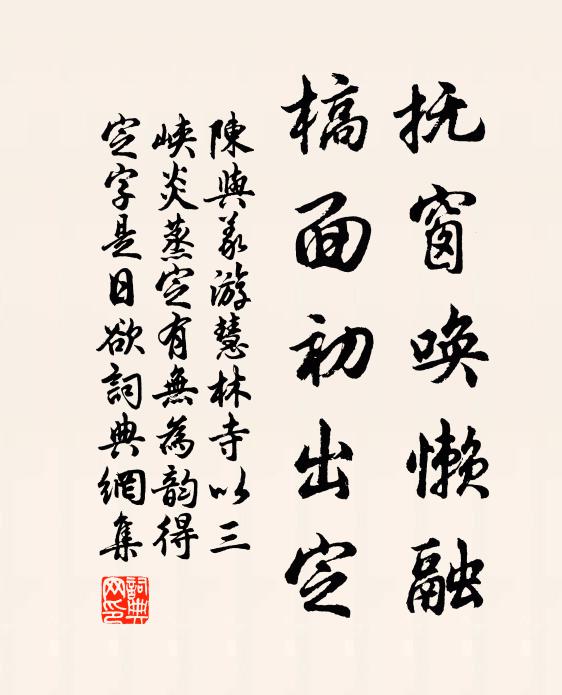 抚窗唤懒融
槁面初出定
陳與義游慧林寺以三
峽炎蒸定有無為韵得
定字是日欲詞典網集
詞典网印